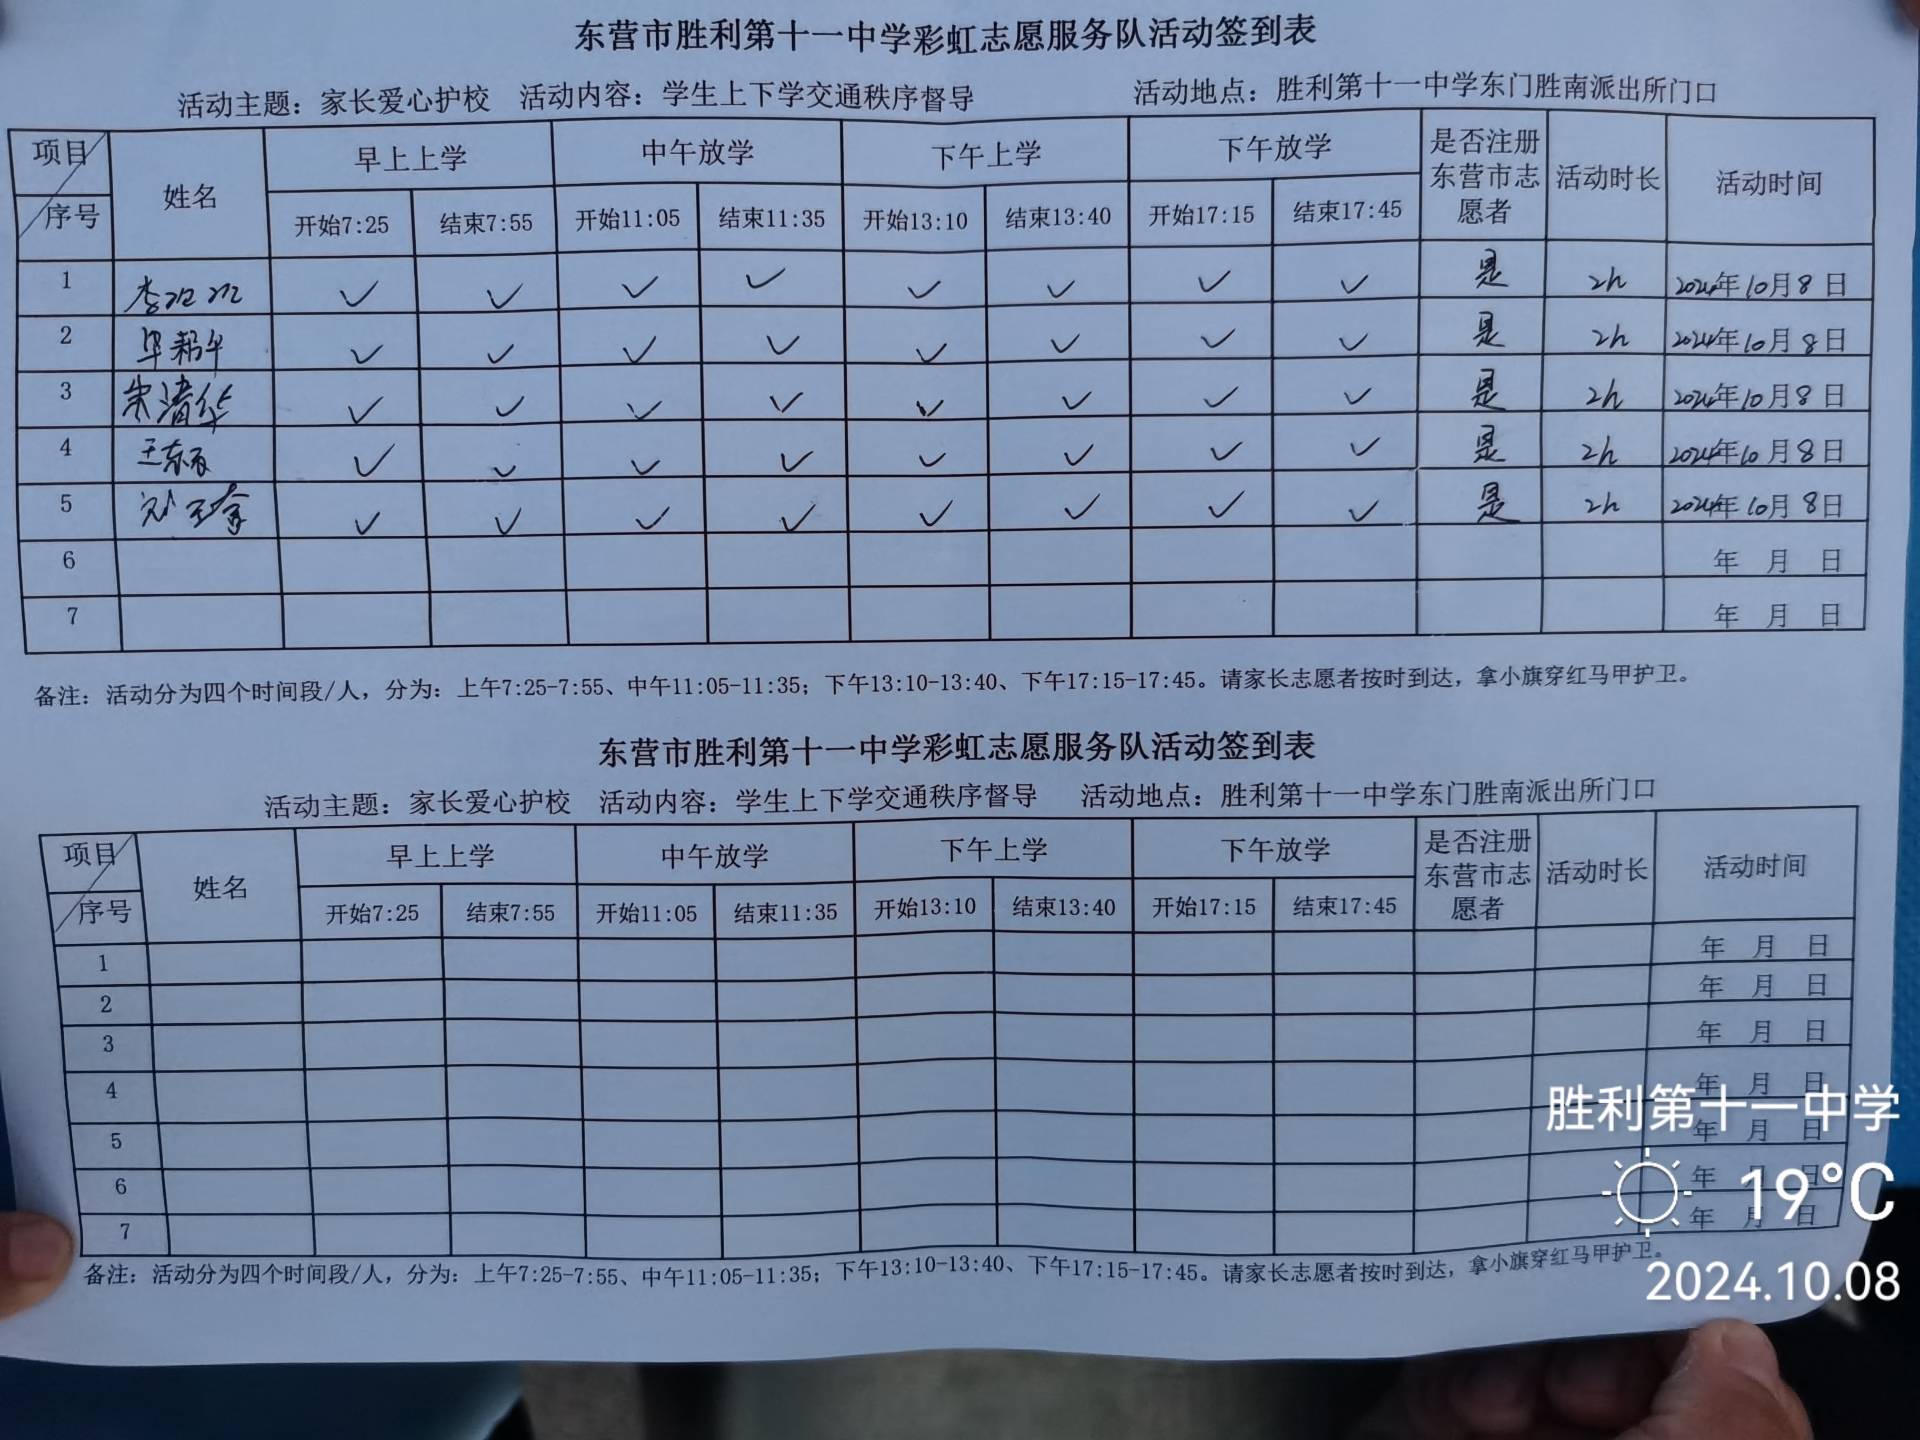 东营市胜利第十一中学彩虹志愿服务队活动签到表
活动主题：家长爱心护校 活动内容：学生上下学交通秩序督导 活动地点：胜利第十一中学东门胜南派出所门口
项目 序号 姓名 早上上学 中午放学 下午上学 下午放学 是否注册东营市志愿者 活动时长 活动时间
开始7:25 结束7:55 开始11:05 结束11:35 开始13:10 结束13:40 开始17:15 结束17:45
1 李 ✓ ✓ ✓ ✓ ✓ ✓ ✓ ✓ 是 2h 2024年10月8日
2 ✓ ✓ ✓ ✓ ✓ ✓ ✓ ✓ 是 2h 2024年10月8日
3 朱清华 ✓ ✓ ✓ ✓ ✓ ✓ ✓ ✓ 是 2h 2024年10月8日
4 王东 ✓ ✓ ✓ ✓ ✓ ✓ ✓ ✓ 是 2h 2024年10月8日
5 刘 ✓ ✓ ✓ ✓ ✓ ✓ ✓ ✓ 是 2h 2024年10月8日
6 年 月 日
7 年 月 日
备注：活动分为四个时间段/人，分为：上午7:25-7:55、中午11:05-11:35；下午13:10-13:40、下午17:15-17:45。请家长志愿者按时到达，拿小旗穿红马甲护卫。
东营市胜利第十一中学彩虹志愿服务队活动签到表
活动主题：家长爱心护校 活动内容：学生上下学交通秩序督导 活动地点：胜利第十一中学东门胜南派出所门口
项目 序号 姓名 早上上学 中午放学 下午上学 下午放学 是否注册东营市志愿者 活动时长 活动时间
开始7:25 结束7:55 开始11:05 结束11:35 开始13:10 结束13:40 开始17:15 结束17:45
1 年 月 日
2 年 月 日
3 年 月 日
4 年 月 日
5 年 月 日
6 年 月 日
7 年 月 日
备注：活动分为四个时间段/人，分为：上午7:25-7:55、中午11:05-11:35；下午13:10-13:40、下午17:15-17:45。请家长志愿者按时到达，拿小旗穿红马甲护卫。
胜利第十一中学
19°C
2024.10.08